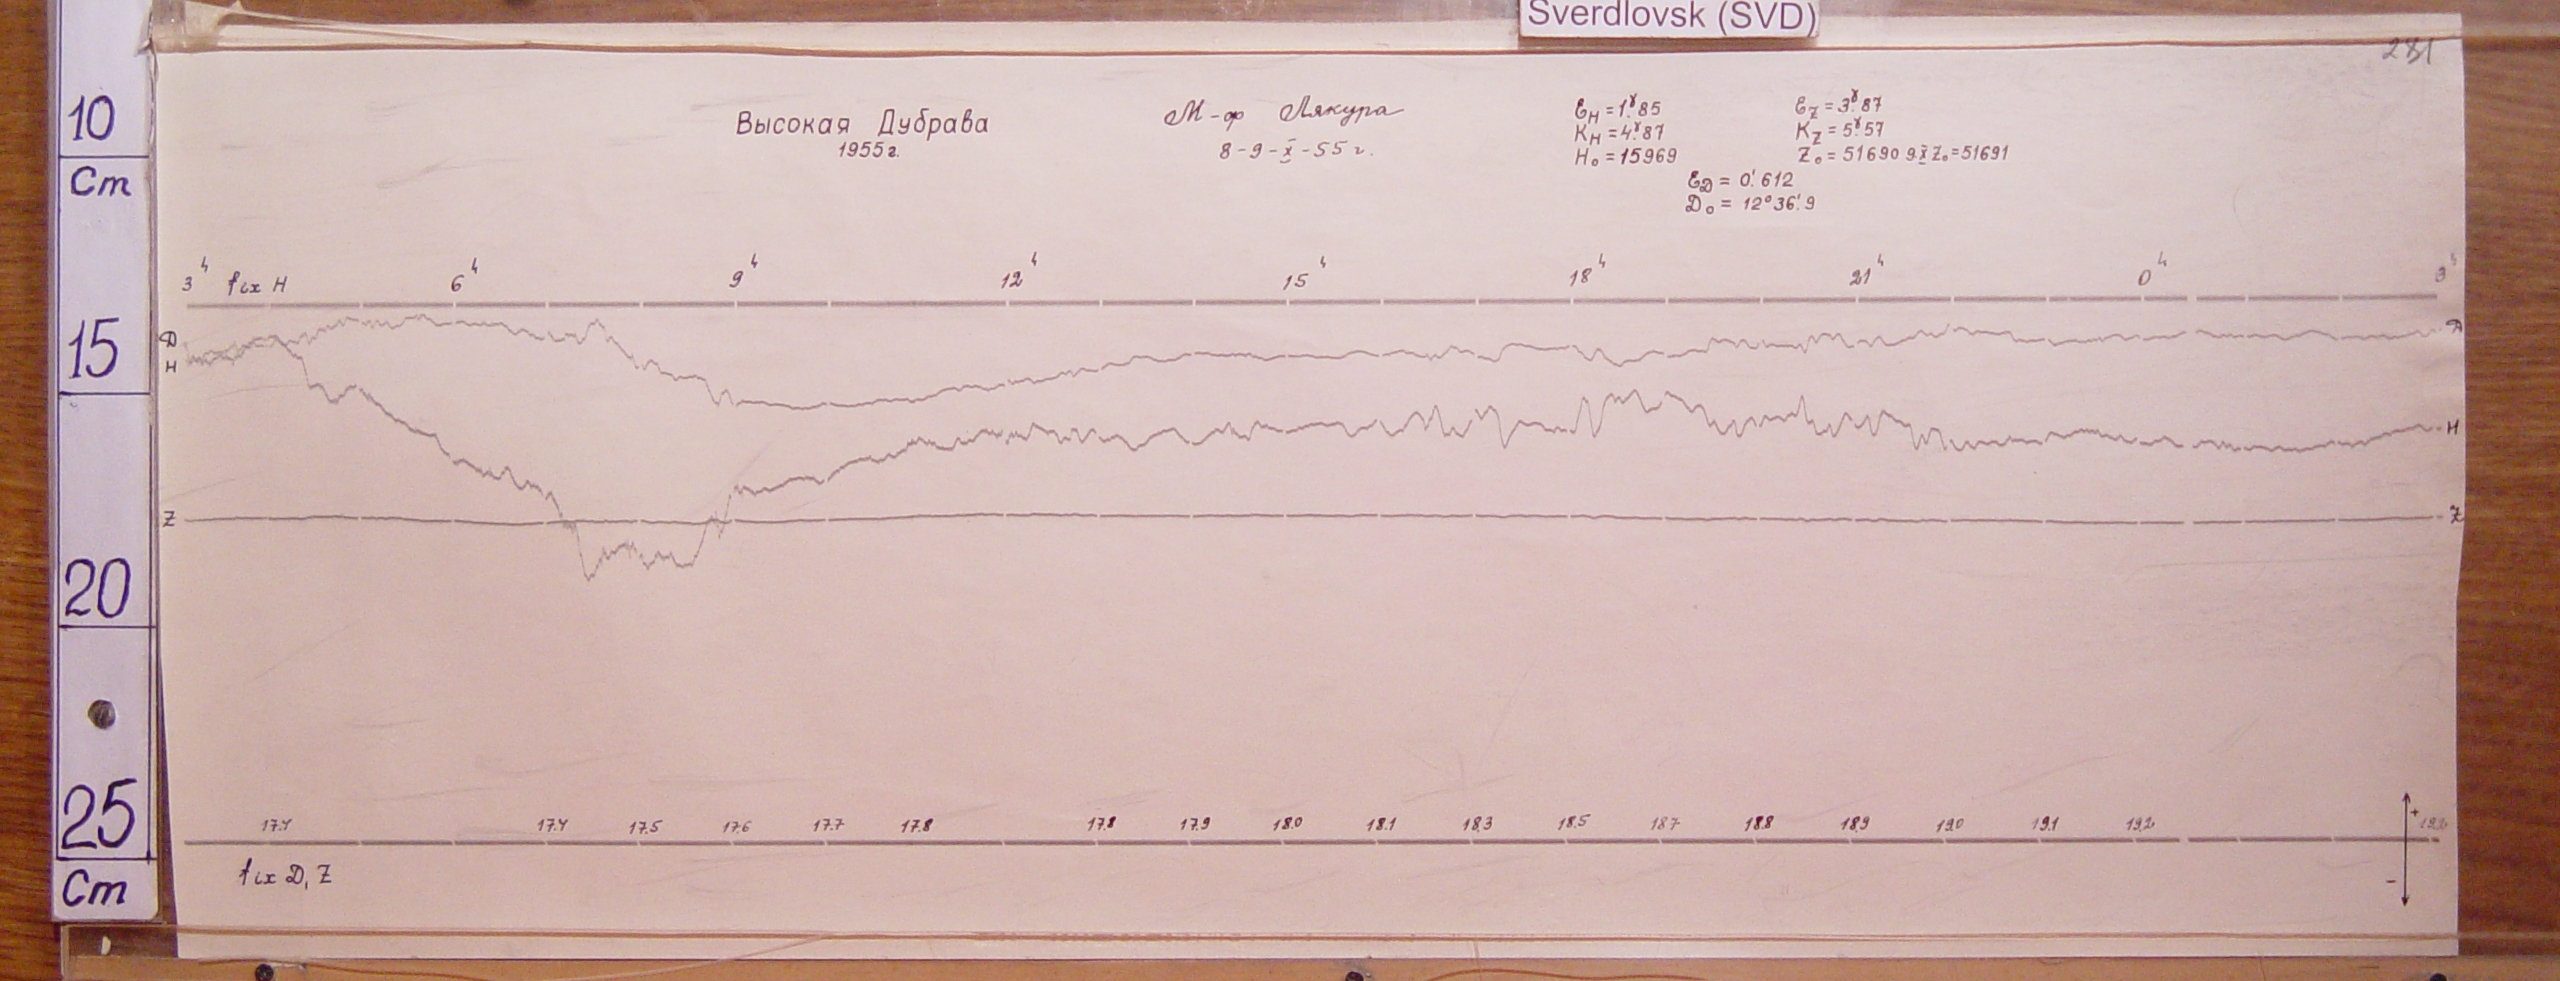 Sverdlovsk (SVD)
281
10
Cm
15
20
25
Cm
Высокая Дубрава
1955 г.
М-ф Лякура
8-9-X-55 г.
ƐH = 1ˠ.85
KH = 4ˠ.87
H₀ = 15969
ƐZ = 3ˠ.87
KZ = 5ˠ.57
Z₀ = 51690 9.X Z₀ = 51691
ƐD = 0'.612
D₀ = 12°36'.9
3ʰ fix H 6ʰ 9ʰ 12ʰ 15ʰ 18ʰ 21ʰ 0ʰ 3ʰ
D D
H H
Z Z
17.4 17.4 17.5 17.6 17.7 17.8 17.8 17.9 18.0 18.1 18.3 18.5 18.7 18.8 18.9 19.0 19.1 19.2
+
-
fix D, Z